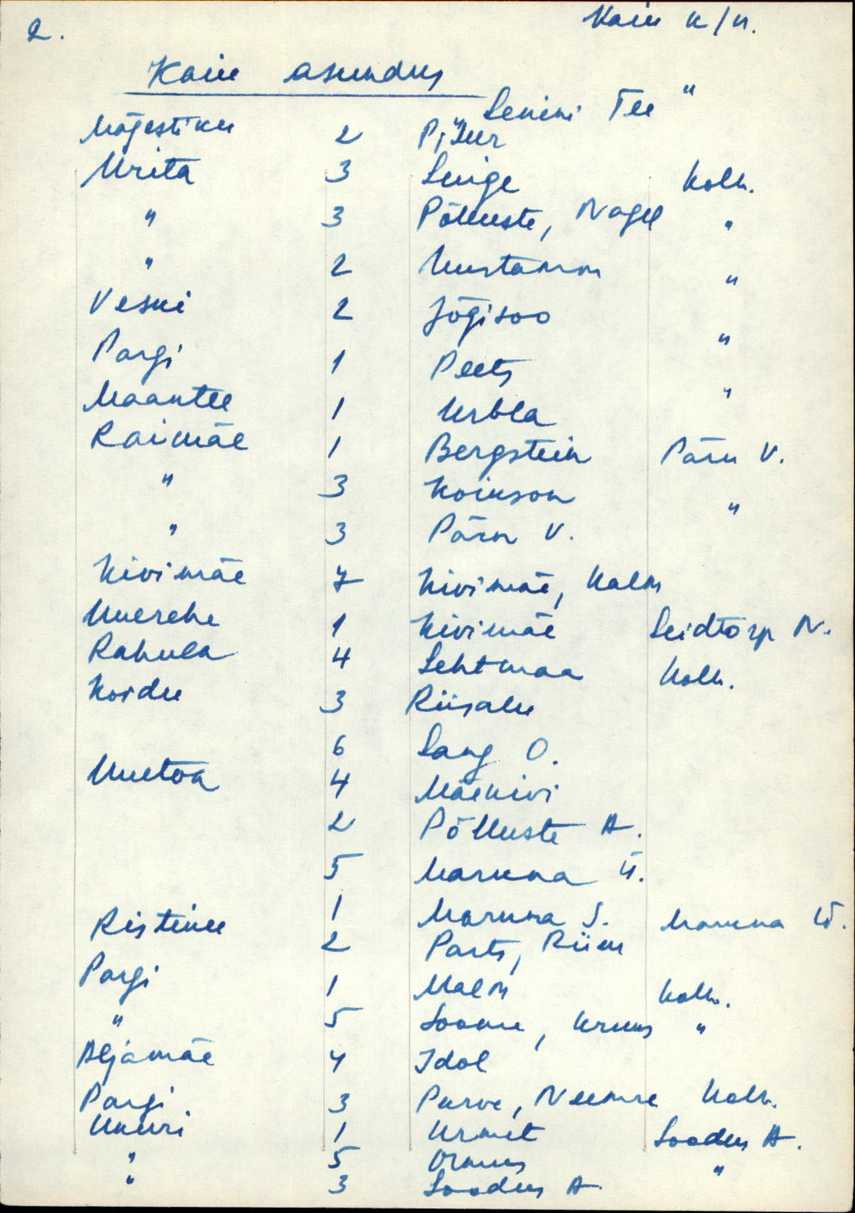 2. Kaiu k/n.
Kaiu asundus
"Lenini Tee"
Mäjestiku 2
Urita 3 Luige kolh.
" 3 Põlluste, Nagel "
" 2 Uustamm "
Veski 2 Jõgisoo "
Pargi 1 Peets "
Maantee 1 Urbla
Raimäe 1 Bergstein Pärn V.
" 3 Koinson "
" 3 Pärn V.
Kivimäe 7 Kivimäe, Kalm
Uuerehe 1 Kivimäe Seidtorp N.
Rahula 4 Lehtmaa kolh.
Kordu 3 Riisalu
6 Laug O.
Uuetoa 4 Mäekivi
2 Põlluste A.
5 Maruma Ü.
1 Maruma S. Maruma Ü.
Ristinee 2 Parts, Riim
Pargi 1 Malm kolh.
" 5 Soome, Kruus "
Aljamäe 4 Idol
Pargi 3 Purve, Neemre kolh.
Ukuri 1 Urmet Loodus A.
" 5 Ormus "
" 3 Loodus A.